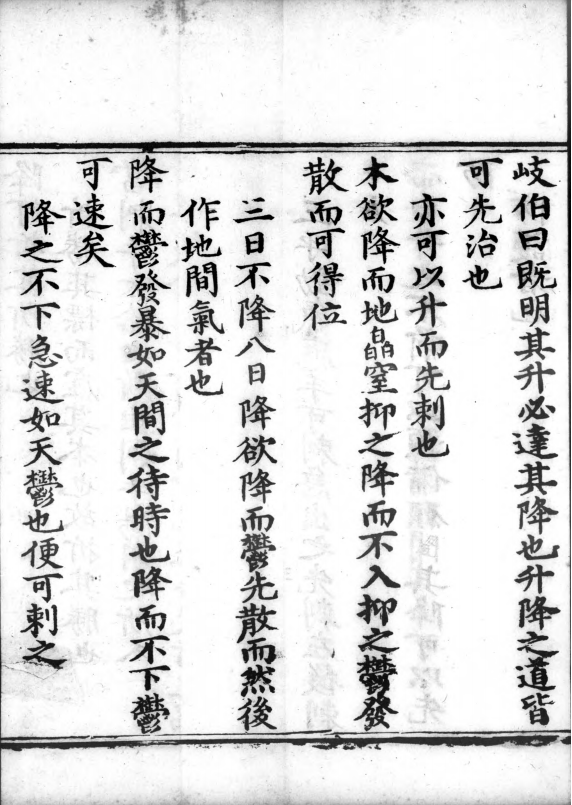 岐伯曰既明其升必達其降也升降之道皆
可先治也
亦可以升而先刺也
木欲降而地皛窒抑之降而不入抑之鬱發
散而可得位
三日不降八日降欲降而鬱先散而然後
作地間氣者也
降而鬱發暴如天間之待時也降而不下鬱
可速矣
降之不下急速如天鬱也便可刺之